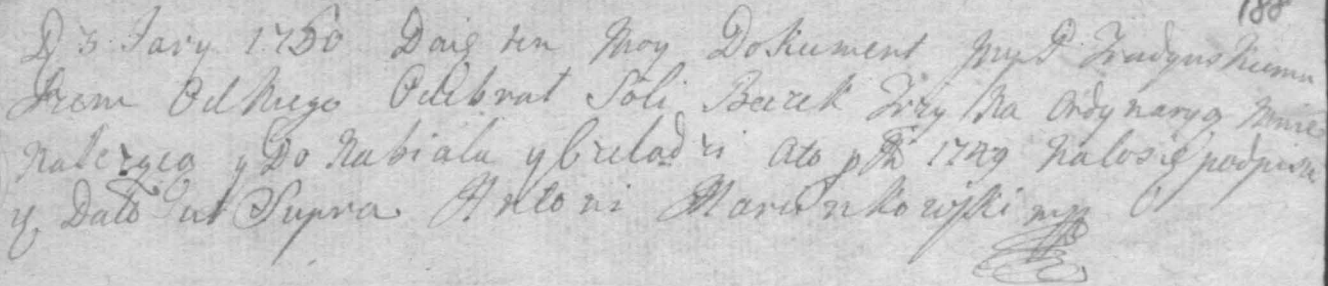 188
D 3 Jary 1750 Daię ten Moy Dokument Jmy P. Zradynskiemu
Izem Od Niego Odebrał Soli Beczek Trzy Na Ordynaryą Mnie
Należącą y Do Nabiału y Czeladzi Ato p Ru 1749 Nato się podpisu
y Dato ut Supra Antoni Marcinkowski mp